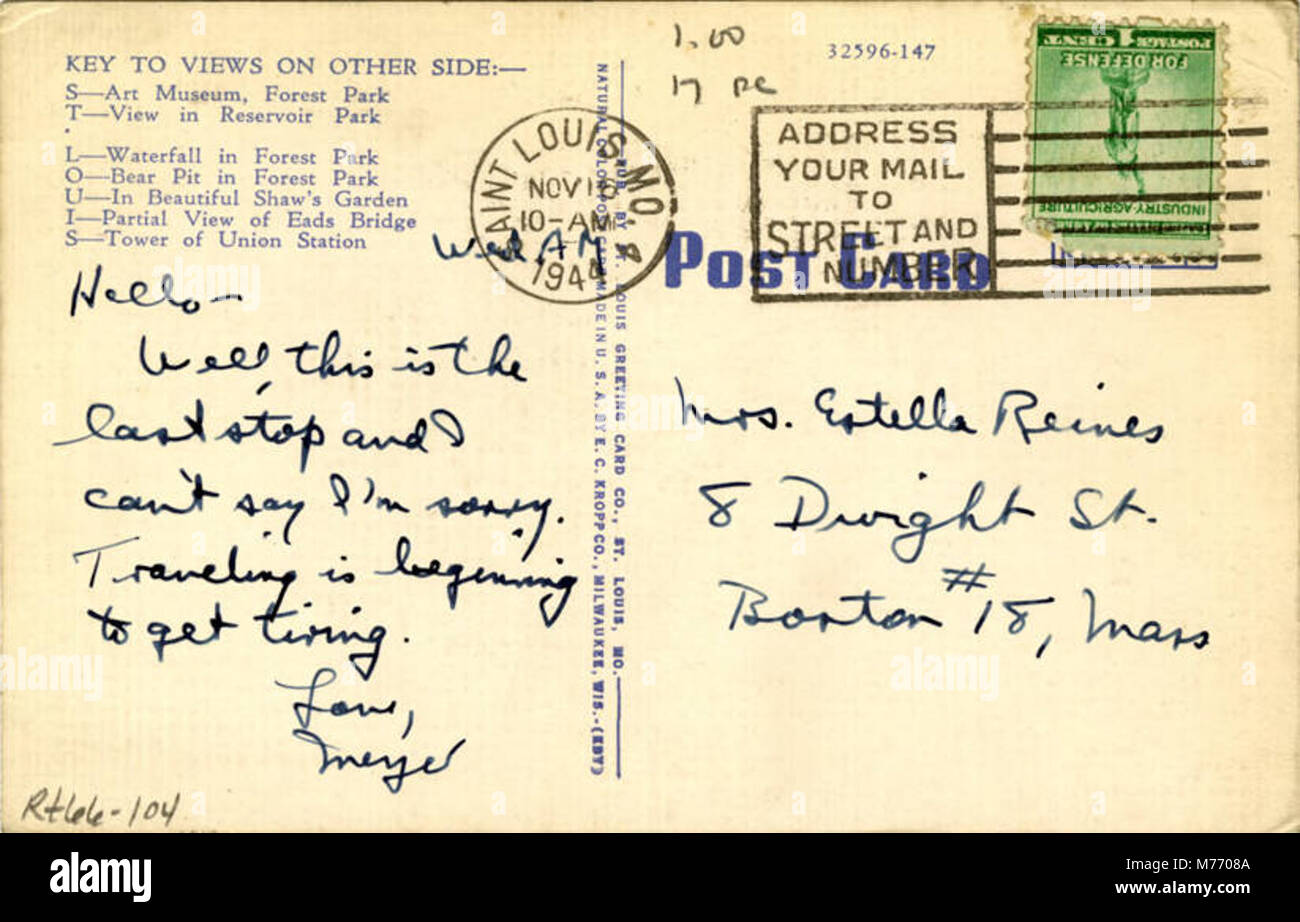 1.00
17 pc
32596-147
KEY TO VIEWS ON OTHER SIDE:—
S—Art Museum, Forest Park
T—View in Reservoir Park
L—Waterfall in Forest Park
O—Bear Pit in Forest Park
U—In Beautiful Shaw's Garden
I—Partial View of Eads Bridge
S—Tower of Union Station
SAINT LOUIS, MO.
NOV 16
10-AM
1944
ADDRESS
YOUR MAIL
TO
STREET AND
NUMBER
POSTAGE 1 CENT
FOR DEFENSE
INDUSTRY AGRICULTURE
POST CARD
PUB. BY ST. LOUIS GREETING CARD CO., ST. LOUIS, MO.
NATURAL COLOR POST CARD MADE IN U. S. A. BY E. C. KROPP CO., MILWAUKEE, WIS.-(KDT)
Wed. AM
Hello—
Well, this is the
last stop and I
can't say I'm sorry.
Traveling is beginning
to get tiring.
Love,
Meyer
Mrs. Estella Reines
8 Dwight St.
Boston #18, Mass
Rt66-104
alamy
M7708A
www.alamy.com